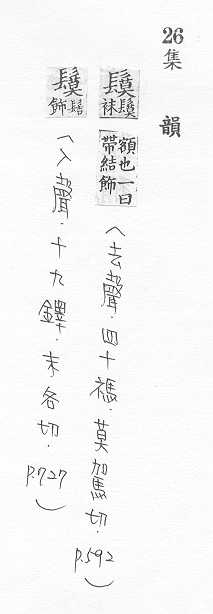 26集 韻
鬕鬕袜額也一曰帶結飾(去聲．四十禡．莫駕切．p.592)
鬕髻飾(入聲．十九鐸．末各切．p.727)